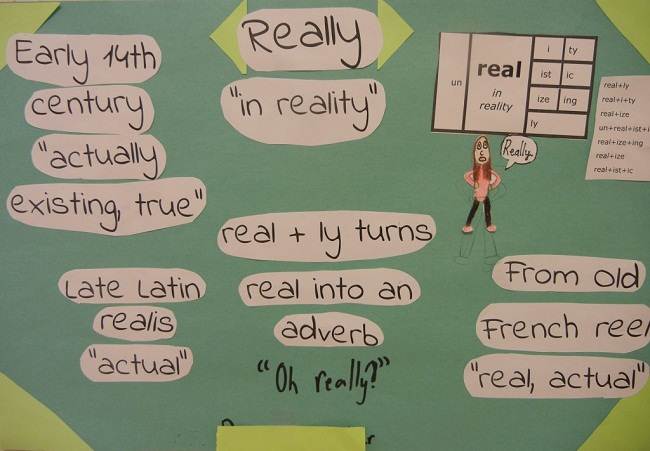 Early 14th
century
"actually
existing, true"
Late Latin
realis
"actual"
Really
"in reality"
real + ly turns
real into an
adverb
"Oh really?"
un
real
in
reality
i ty
ist ic
ize ing
ly
real+ly
real+i+ty
real+ize
un+real+ist+i
real+ize+ing
real+ize
real+ist+ic
Really
From Old
French reel
"real, actual"